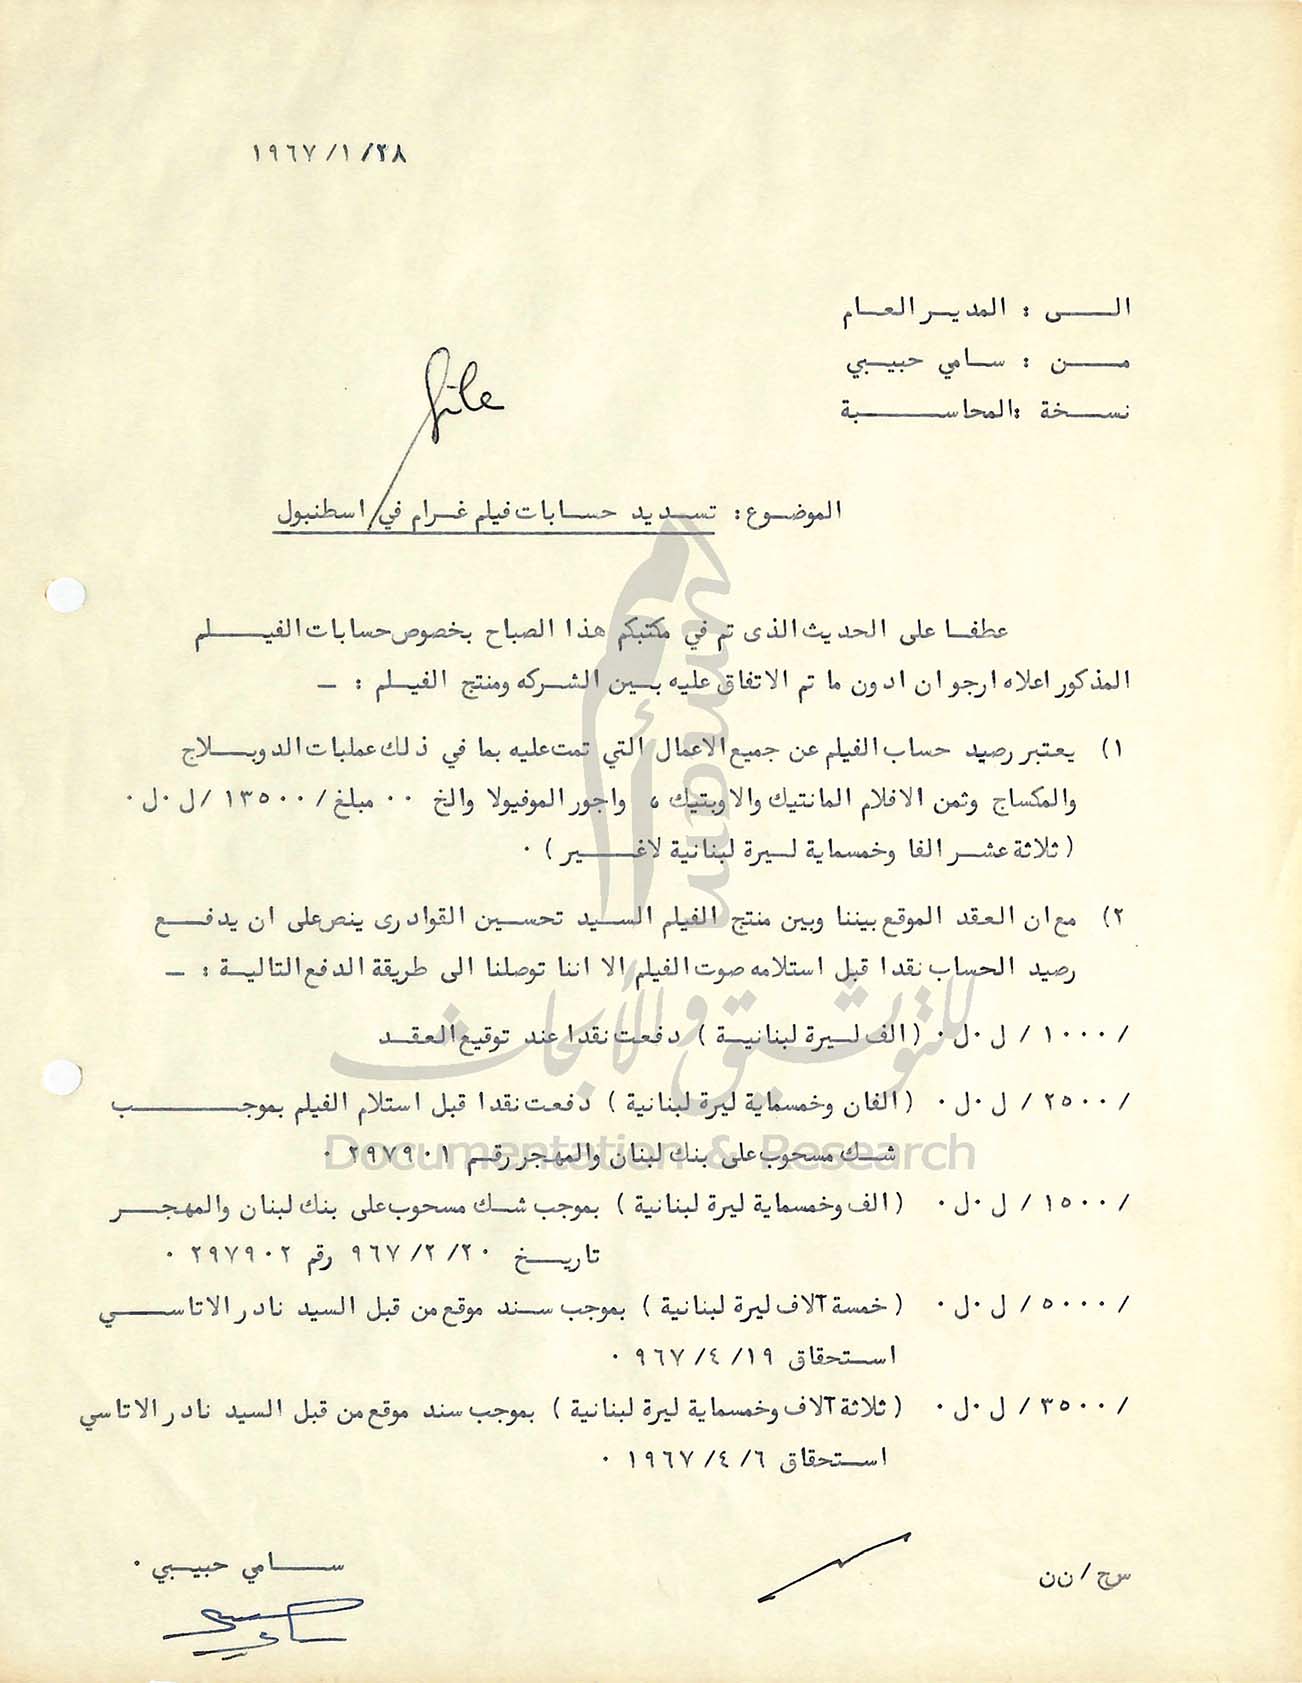 ١٩٦٧/١/٢٨
الــى : المديـر العـام
مـن : سـامي حبيـبي
نسـخة :المحاسـبة
file
الموضـوع: تسـديد حسـابات فيلم غـرام في اسطنبول
عطفـا على الحديث الذى تم في مكتبكم هذا الصباح بخصوص حسابات الفيـلم
المذكور اعلاه ارجو ان ادون ما تم الاتفاق عليه بـين الشـركه ومنتج الفيـلم : ـ
١) يعتبر رصيد حساب الفيلم عن جميع الاعمال التي تمت عليه بما في ذلك عمليات الدوبـلاج
والمكساج وثمن الافلام المانتيك والاوبتيك ، واجور الموفيولا والخ ٠٠ مبلغ /١٣٥٠٠ /ل٠ل٠
( ثلاثة عشـر الفا وخمسماية لـيرة لبنانية لاغـير ) ٠
٢) مع ان العقد الموقع بيننا وبين منتج الفيلم السـيد تحسـين القوادرى ينص على ان يدفـع
رصيد الحساب نقدا قبل استلامه صوت الفيلم الا اننا توصلنا الى طريقة الدفع التاليـة : ـ
/ ١٠٠٠ / ل٠ل٠ ( الف لـيرة لبنانيـة ) دفعت نقدا عند توقيع العقـد
/ ٢٥٠٠ / ل٠ل٠ ( الفان وخمسماية ليرة لبنانية ) دفعت نقدا قبل استلام الفيلم بموجـب
شـك مسحوب على بنك لبنان والمهجر رقـم ٢٩٧٩٠١ ٠
/ ١٥٠٠ / ل٠ل٠ ( الف وخمسماية ليرة لبنانية ) بموجب شـك مسحوب على بنك لبنان والمهجـر
تاريـخ ٩٦٧/٢/٢٠ رقم ٢٩٧٩٠٢ ٠
/ ٥٠٠٠ / ل٠ل٠ ( خمسة آلاف ليرة لبنانية ) بموجب سـند موقع من قبل السـيد نادر الاتاسـي
اسـتحقاق ٩٦٧/٤/١٩ ٠
/ ٣٥٠٠ / ل٠ل٠ ( ثلاثة آلاف وخمسماية ليرة لبنانية ) بموجب سند موقع من قبل السـيد نادر الاتاسي
اسـتحقاق ١٩٦٧/٤/٦ ٠
سـامي حبيـبي ٠
سح/ن ن
سامي حبيبي
أمم umam
للتوثيق والأبحاث
Documentation & Research